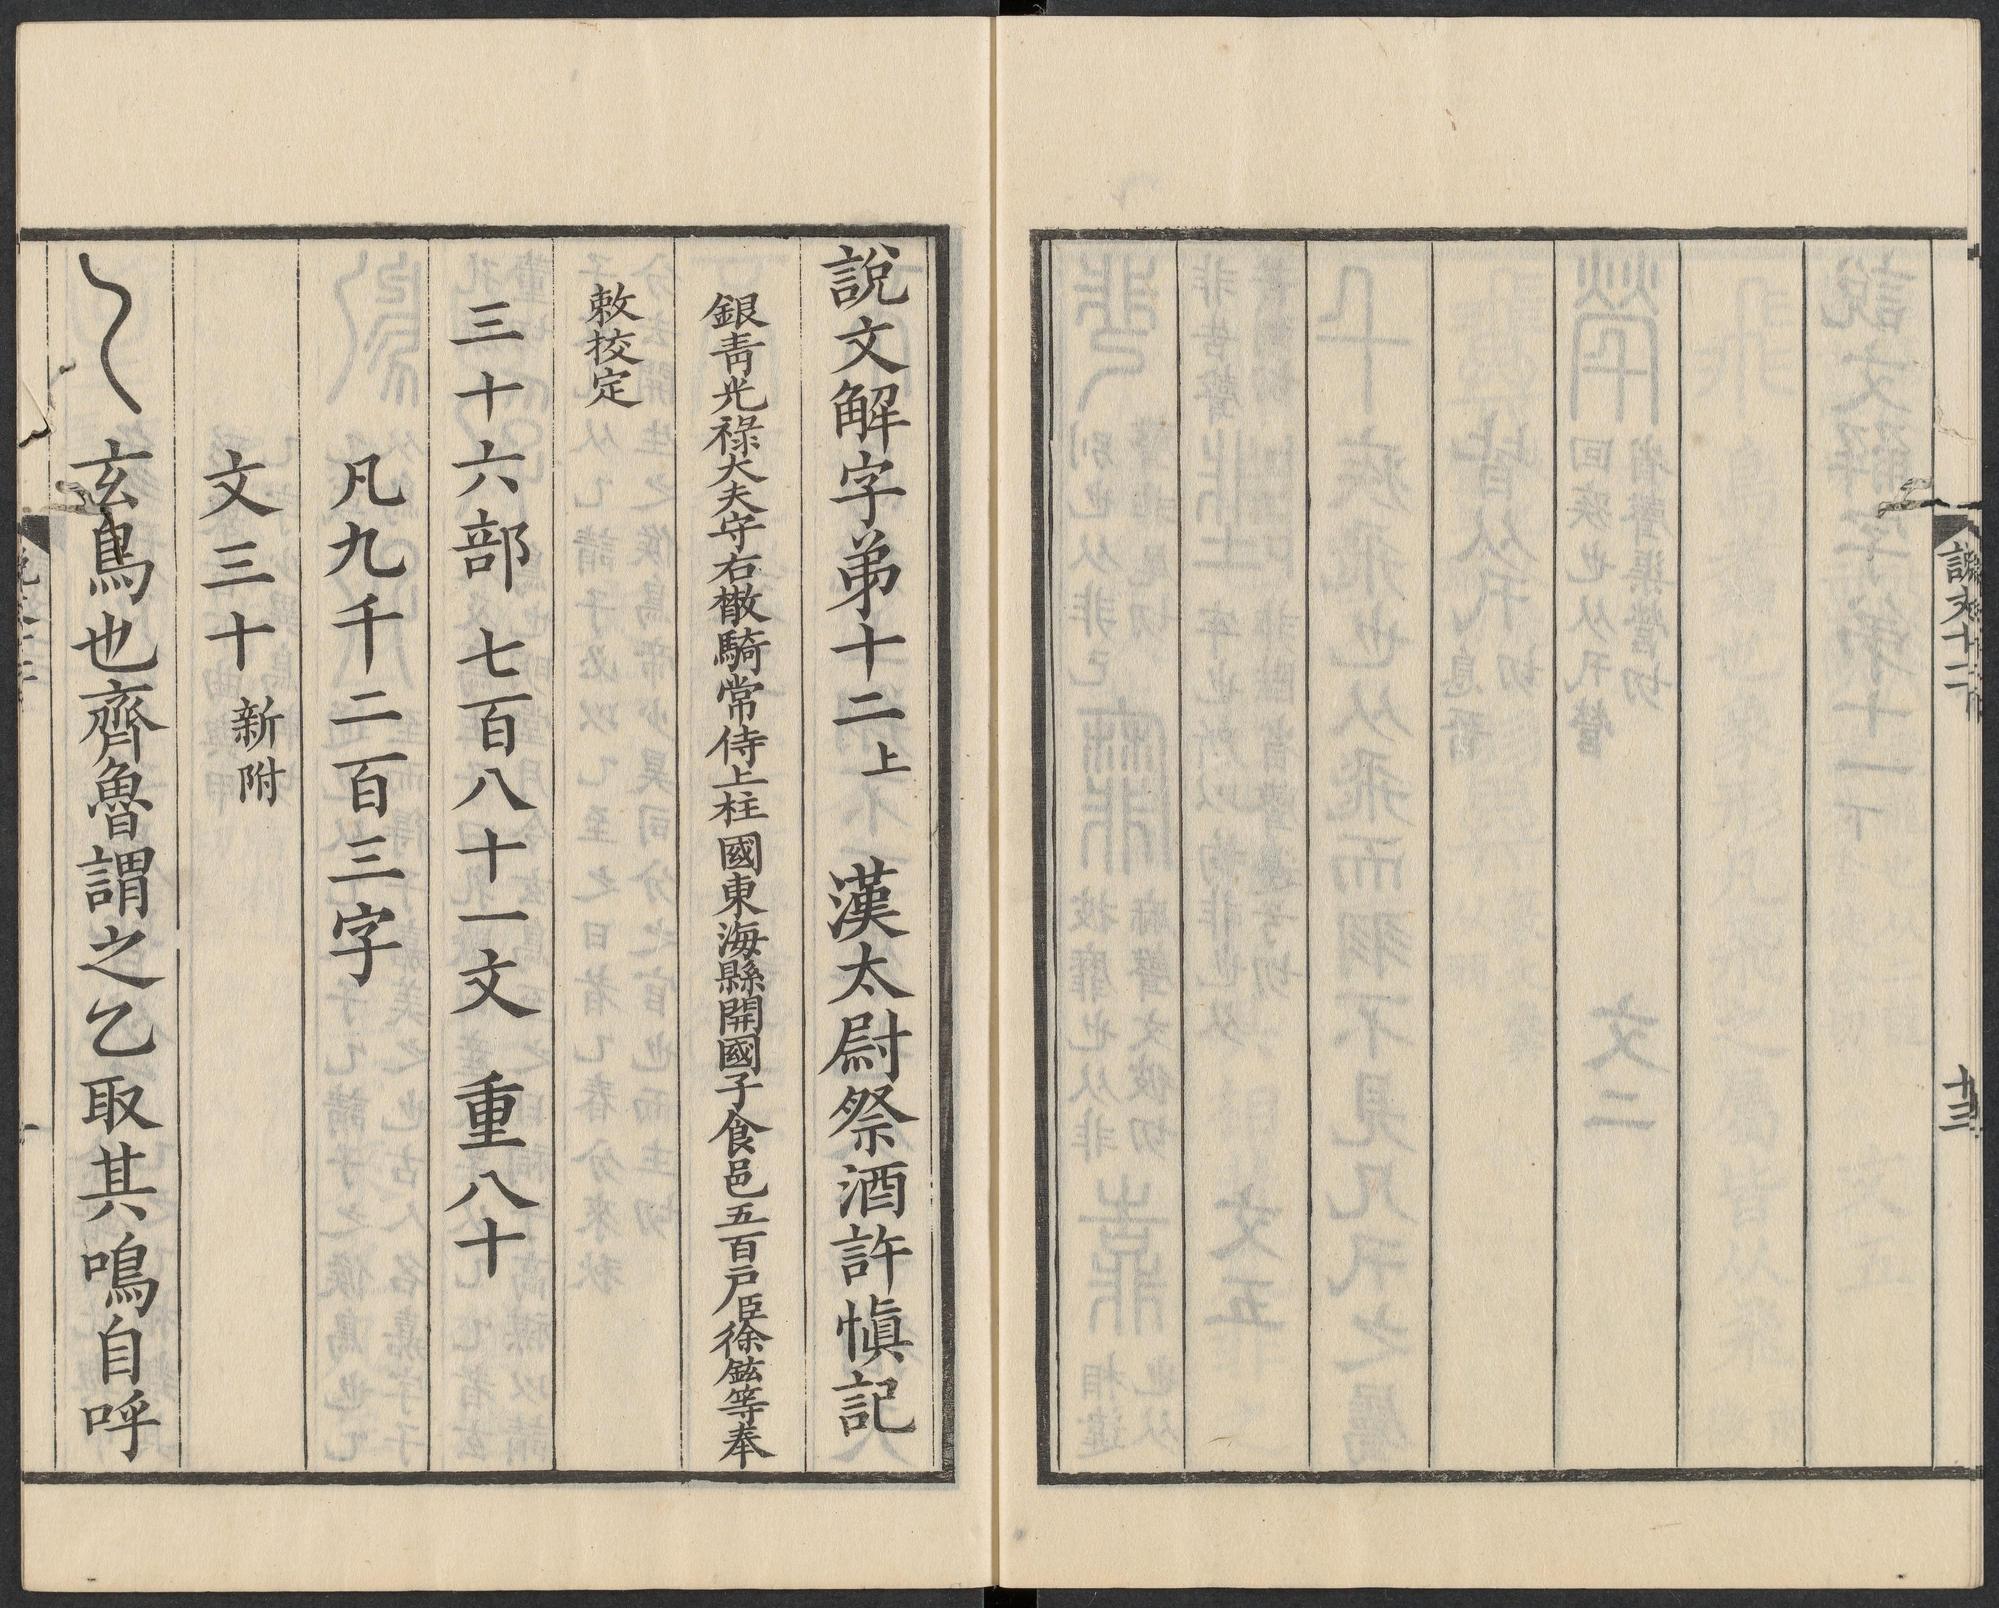 說文十二
十三
說文解字弟十二上 漢太尉祭酒許慎記
銀青光祿大夫守右散騎常侍上柱國東海縣開國子食邑五百戶臣徐鉉等奉
敕挍定
三十六部 七百八十一文 重八十
凡九千二百三字
文三十 新附
玄鳥也齊魯謂之乙取其鳴自呼